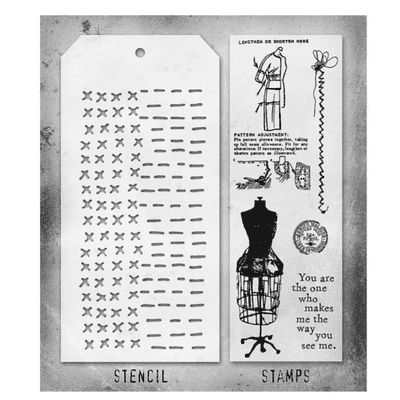 LENGTHEN OR SHORTEN HERE
PATTERN ADJUSTMENT:
Pin pattern pieces together, taking
up full seam allowance. Fit for any
alterations. If necessary, lengthen or
shorten pattern as illustrated.
You are
the one
who
makes
me the
way
you
see me.
STENCIL
STAMPS